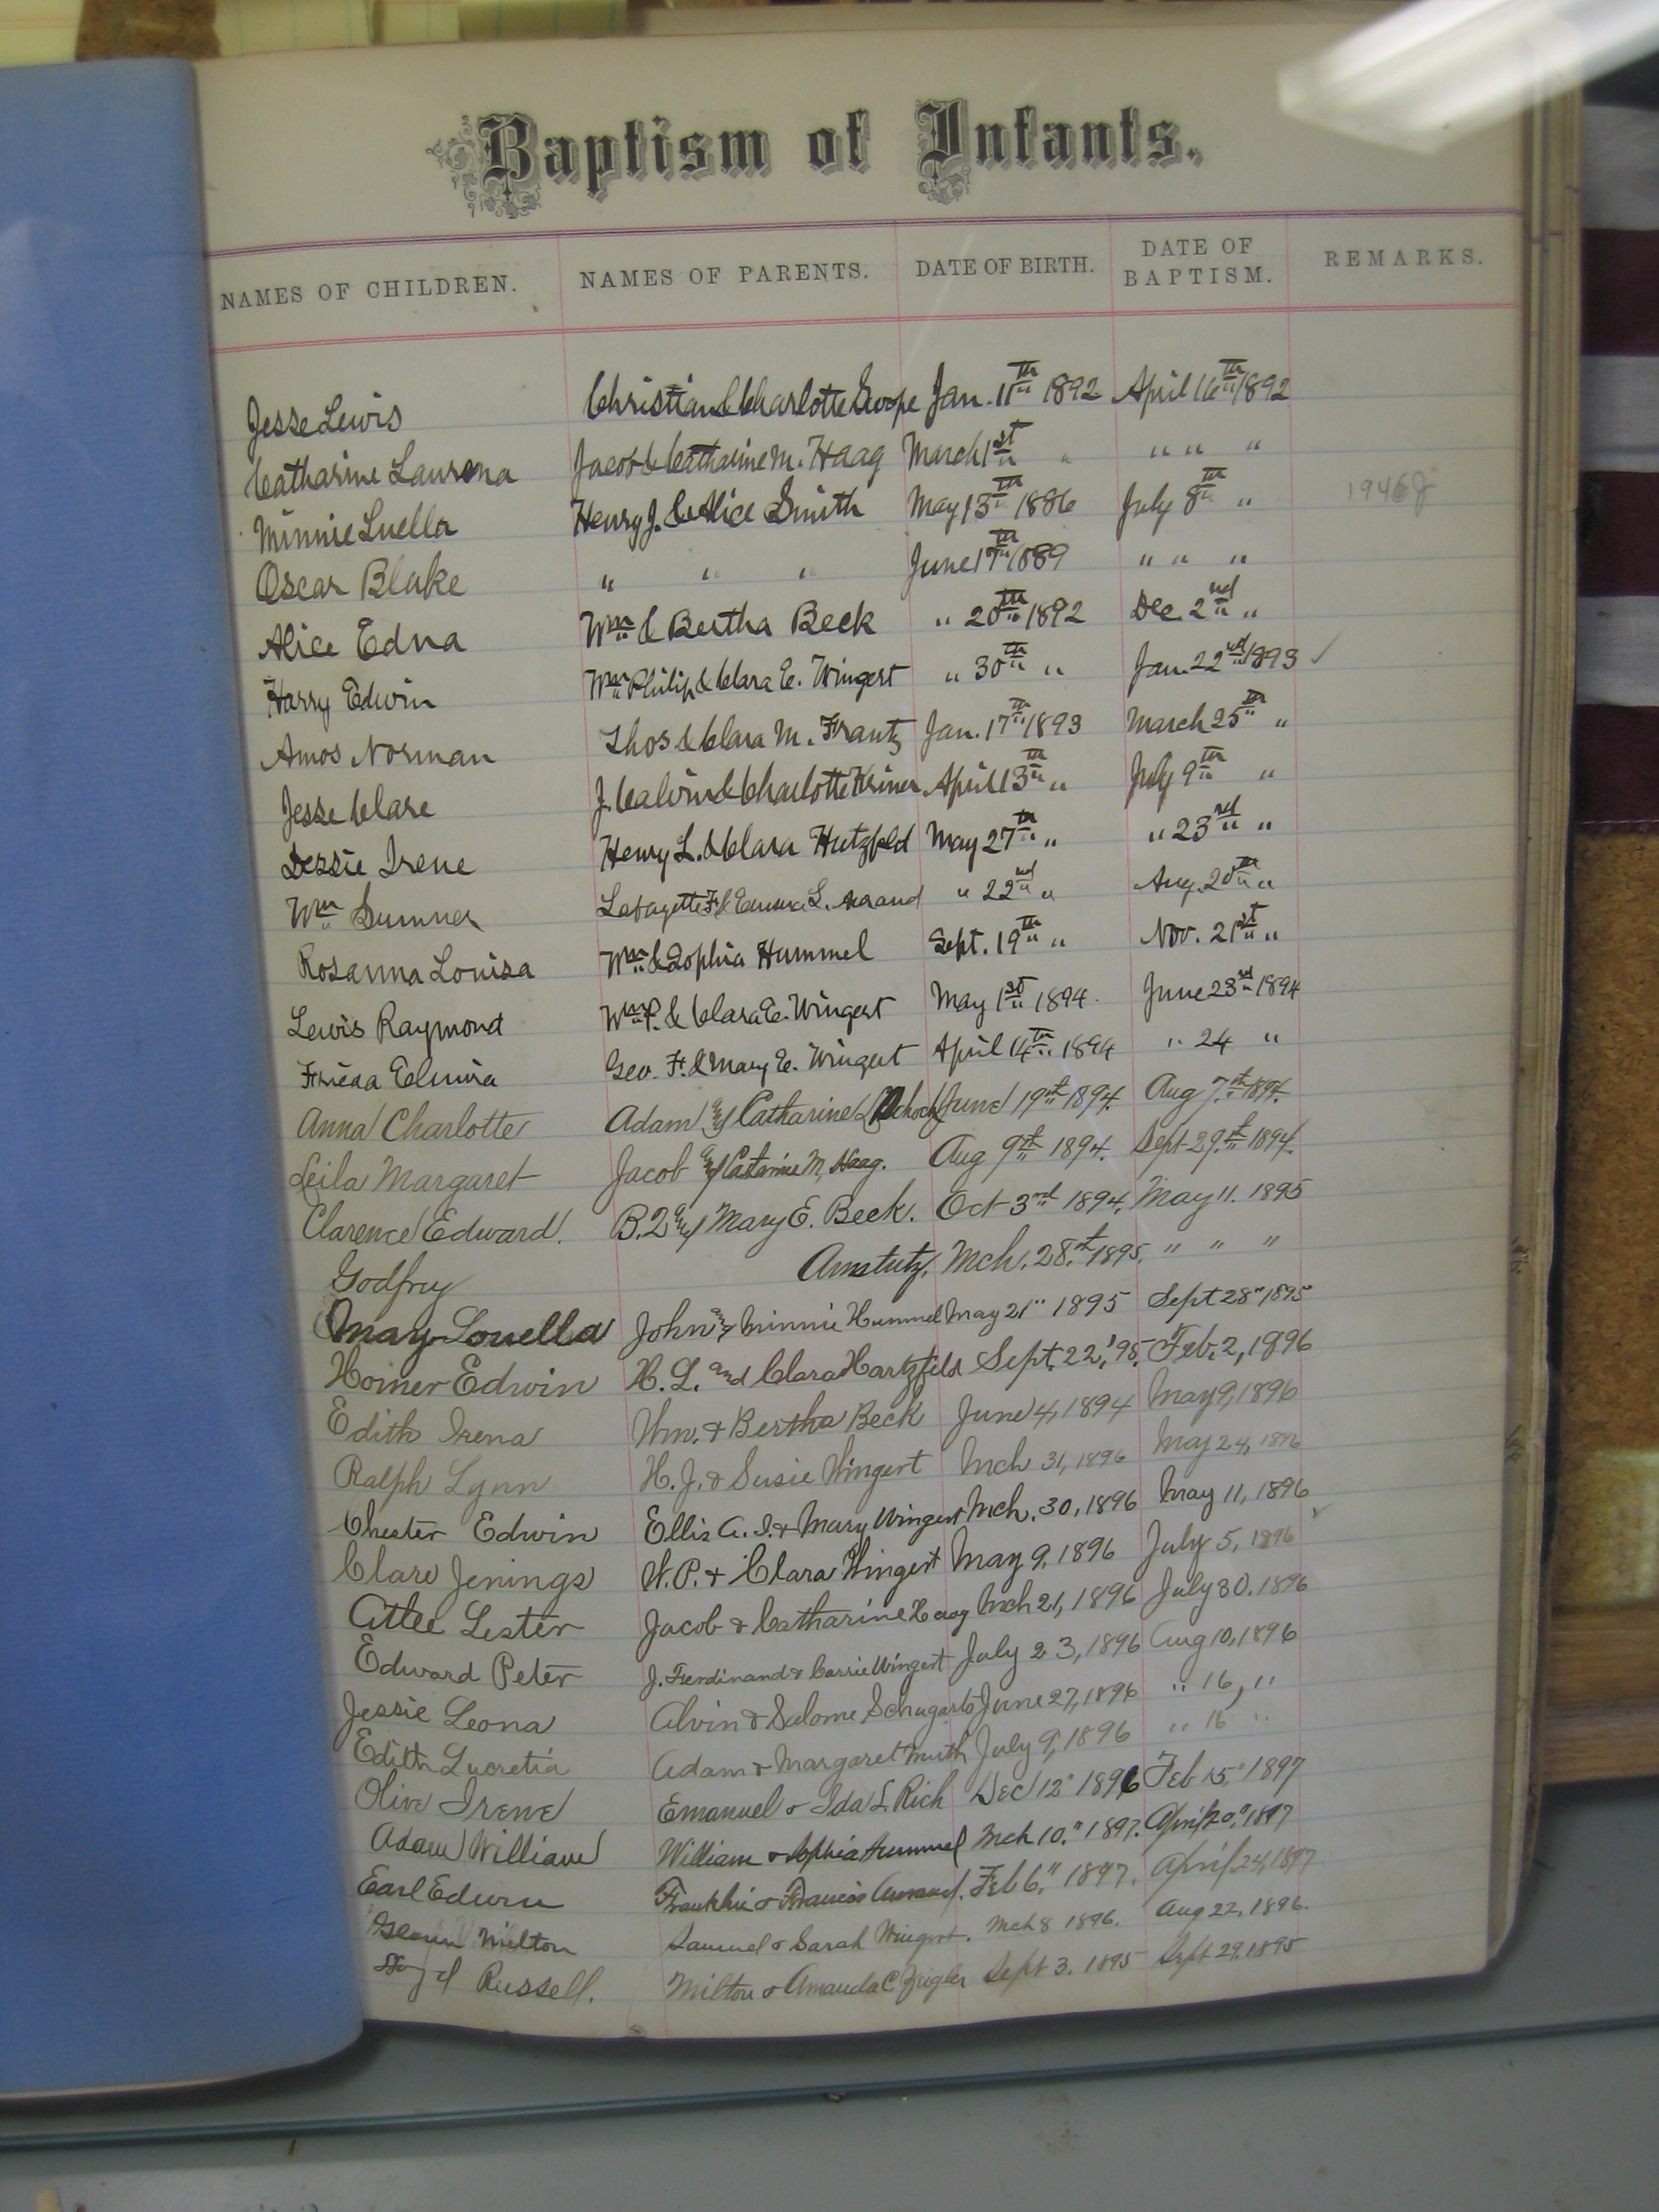 Baptism of Infants.
NAMES OF CHILDREN. NAMES OF PARENTS. DATE OF BIRTH. DATE OF BAPTISM. REMARKS.
Jesse Lewis Christian & Charlotte Swope Jan. 11th 1892 April 16th 1892
Catharine Laurena Jacob & Catharine M. Haag March 1st " " " "
Minnie Luella Henry J. & Alice Smith May 13th 1886 July 8th " 1946
Oscar Blake " " " June 17th 1889 " " "
Alice Edna Wm & Bertha Beck " 20th 1892 Dec. 2nd "
Harry Edwin Wm Philip & Clara E. Wingert " 30th " Jan. 22nd 1893 ✓
Amos Norman Thos & Clara M. Frantz Jan. 17th 1893 March 25th "
Jesse Clare J. Calvin & Charlotte Kriner April 13th " July 9th "
Dessie Irene Henry L. & Clara Hutzfeld May 27th " " 23rd "
Wm Sumner Lafayette F. & Emma L. " 22nd " Aug. 20th "
Rosanna Louisa Wm & Sophia Hummel Sept. 19th " Nov. 21st "
Lewis Raymond Wm P. & Clara E. Wingert May 1st 1894 June 23rd 1894
Frieda Elmira Geo. F. & Mary E. Wingert April 14th 1894 " 24 "
Anna Charlotte Adam and Catharine June 19th 1894. Aug 7.th 1894.
Leila Margaret Jacob and Catarine M. Haag. Aug 9th 1894. Sept 29.th 1894.
Clarence Edward. B. and Mary E. Beck. Oct 3rd 1894. May 11. 1895
Godfrey Amstutz. Mch. 28.th 1895. " " "
Mary Louella John and Minnie Hummel May 21" 1895 Sept 28" 1895
Homer Edwin H. L. and Clara Hartzfeld Sept. 22, '95. Feb. 2, 1896
Edith Irena Wm. & Bertha Beck June 4, 1894 May 9, 1896
Ralph Lynn H. J. & Susie Wingert Mch 31, 1896 May 24, 1896
Chester Edwin Ellis A. I. & Mary Wingert Mch. 30, 1896 May 11, 1896 ✓
Clare Jenings W. P. & Clara Wingert May 9, 1896 July 5, 1896
Atlee Lester Jacob & Catharine Haag Mch 21, 1896 July 30. 1896
Edward Peter J. Ferdinand & Carrie Wingert July 23, 1896 Aug 10, 1896
Jessie Leona Alvin & Salome June 27, 1896 " 16, "
Edith Lucretia Adam & Margaret Muth July 9, 1896 " 16 "
Olive Irene Emanuel & Ida L. Rich Dec 12" 1896 Feb 15" 1897
Adam William William & Sophia Hummel Mch 10." 1897. April 20," 1897
Earl Edwin Franklin & Francis Feb 6," 1897. April 24, 1897
Milton Samuel & Sarah Wingert. Mch 8 1896. Aug 22, 1896.
Russell. Milton & Amanda C. Zeigler Sept 3. 1895 Sept 29. 1895